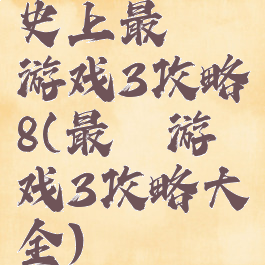 史上最
游戏3攻略
8(最 游
戏3攻略大
全)